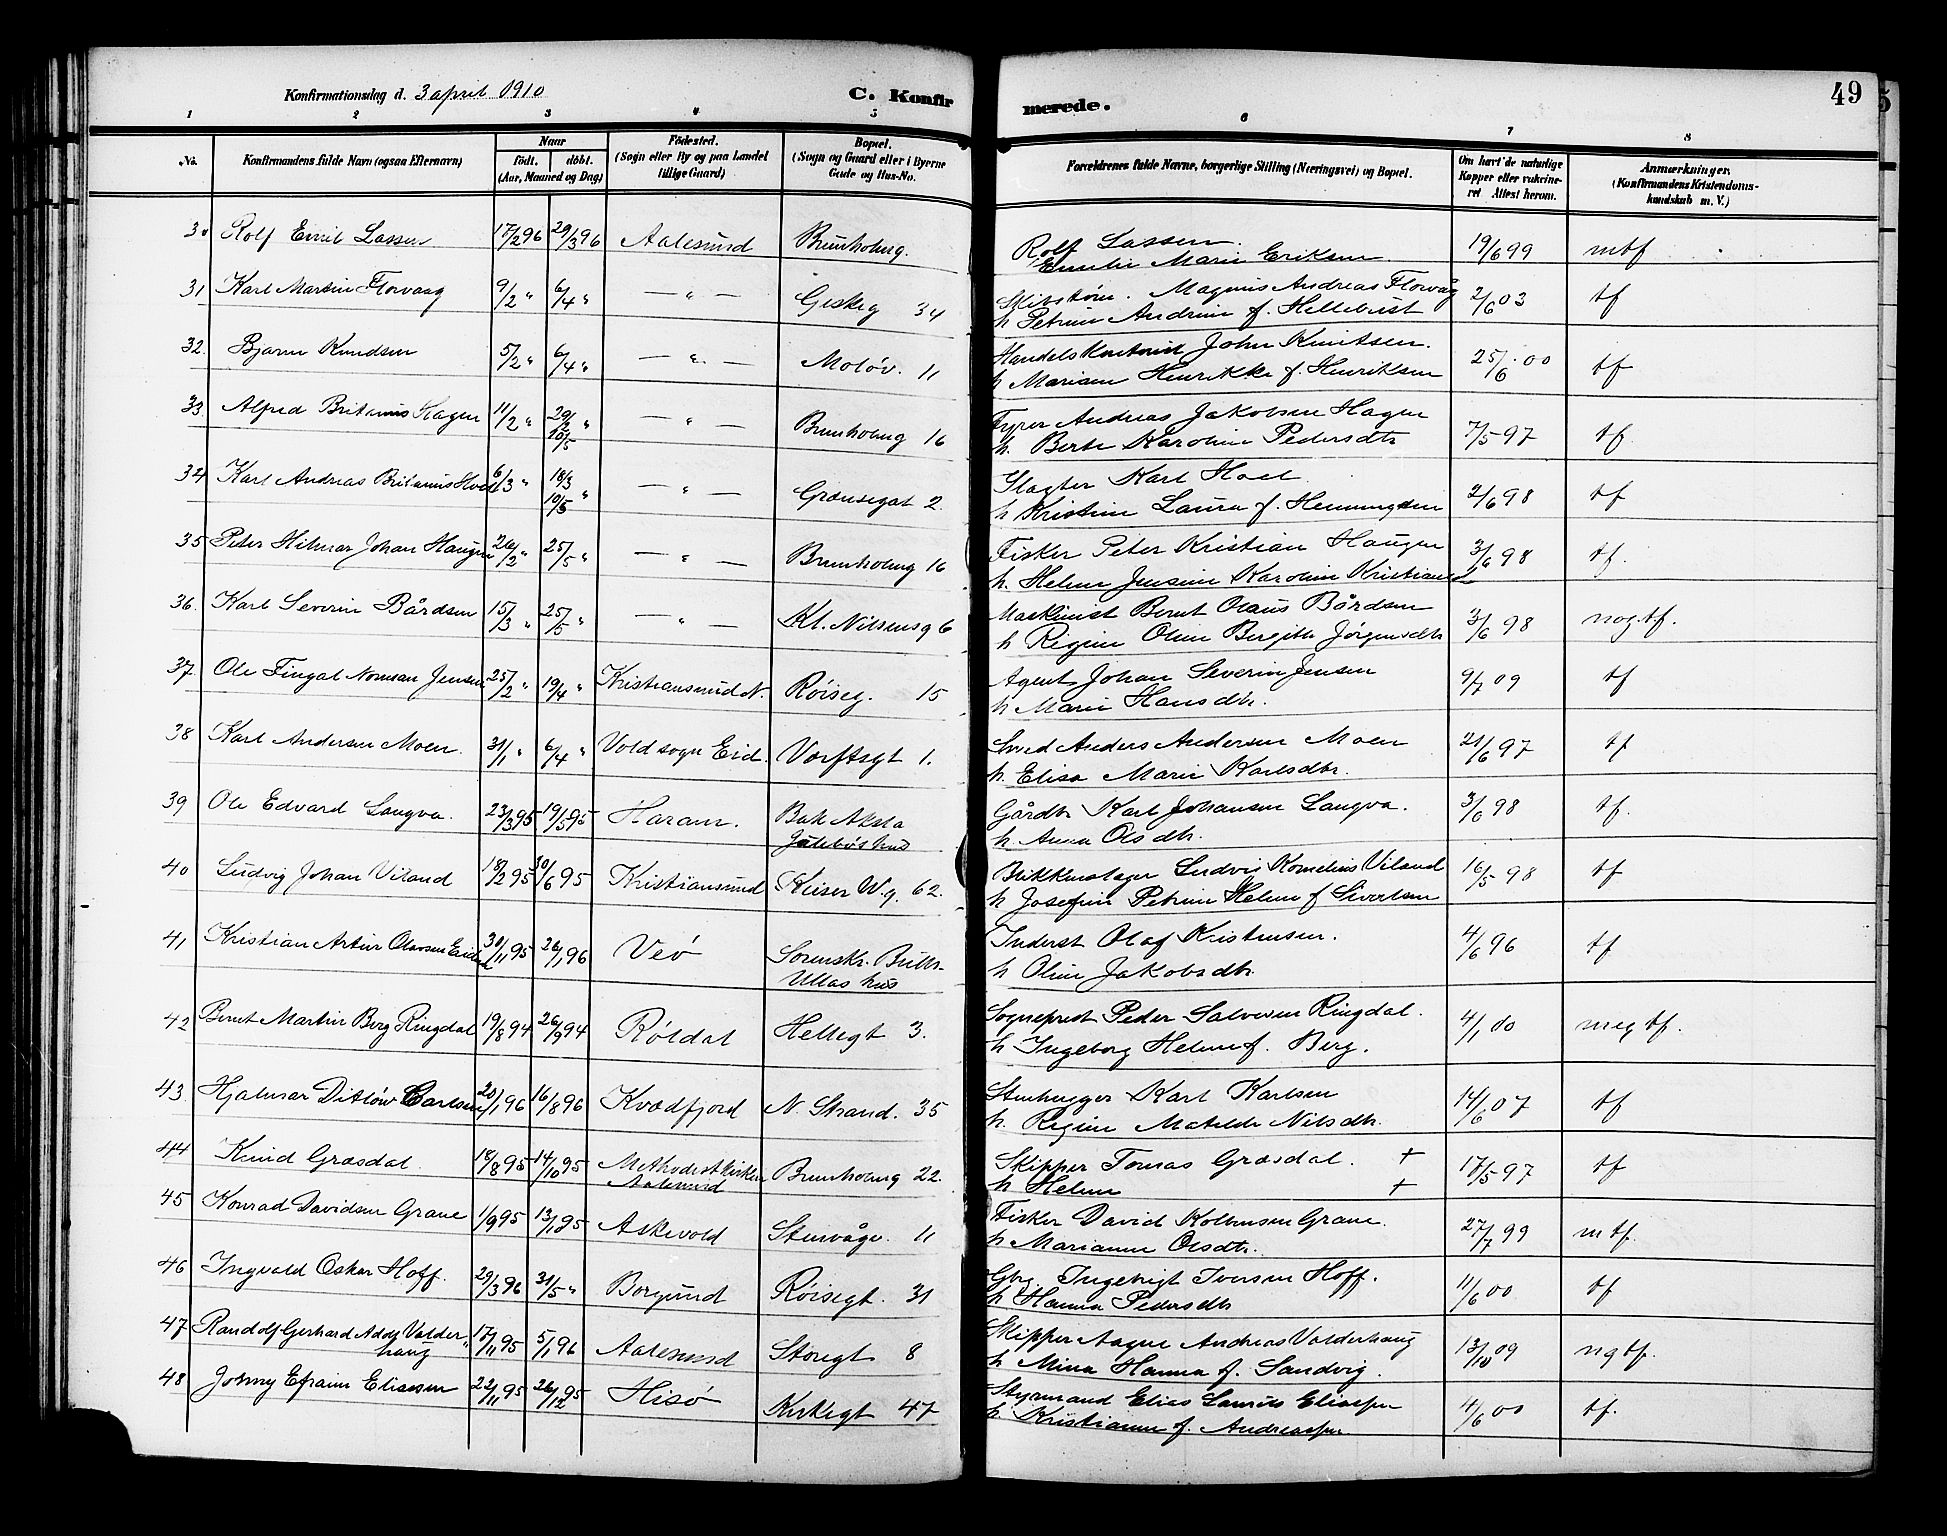 Konfirmationsdag d. 3 april 1910
C. Konfirmerede.
49
1 2 3 4 5 6 7 8
No. Konfirmandens fulde Navn (ogsaa Efternavn) Naar født. døbt. (Aar, Maaned og Dag) Fødested. (Sogn eller By og paa Landet tillige Gaard) Bopæl. (Sogn og Gaard eller i Byerne Gade og Hus-No. Forældrenes fulde Navne, borgerlige Stilling (Næringsvei) og Bopæl. Om havt de naturlige Kopper eller vakcineret Attest herom. Anmærkninger. (Konfirmandens Kristendomskundskab m. V.)
30 Rolf Emil Lassen 17/2 96 29/3 96 Aalesund Brunholmg. Rolf Lassen. 19/6 99 mtf
Emilie Marie Eriksen
31 Karl Martin Florvaag 9/2 " 6/4 " — " — Giskeg 34 Skibstøm. Magnus Andreas Florvåg 2/6 03 tf
h Petrine Andrine f. Hellebust
32. Bjarne Knudsen 5/2 " 6/4 " — " — Moløv. 11 Handelskontorist John Knutsen. 25/6 00 tf
h Marisen Henrikke f. Henriksen
33. Alfred Britanius Hagen 11/2 " 29/2 10/5 " — " — Brunholmg 16 Fyrer Andreas Jakobsen Hagen 7/5 97 tf
h. Berte Karoline Pedersdtr
34 Karl Andreas Britanius Hoel 6/3 " 18/3 10/5 " — " — Grænsegat 2. Slagter Karl Hoel 2/6 98 tf
h Kristine Laura f. Henningsen
35 Peter Hilmar Johan Haugen 26/2 " 25/5 " — " — Brunholmg 16 Fisker Peter Kristian Haugen 3/6 98 tf.
h. Helene Jensine Karoline
36. Karl Severin Bårdsen 15/3 " 25/5 " — " — Kl. Nilsensg 6 Maskinist Bernt Olaus Bårdsen 3/6 98 nog.tf.
h Regine Oline Bergitte Jørgensdtr
37. Ole Fingal Norman Jensen 25/2 " 19/4 " Kristiansund N. Røiseg. 15 Agent Johan Severin Jensen 9/7 09 tf
h Marie Hansdtr.
38 Karl Andersen Moen. 31/1 " 6/4 " Voldsogn Eid. Værftsgt 1. Smed Anders Andersen Moen 21/6 97 tf
h. Elisa Marie Karlsdtr.
39 Ole Edvard Langva. 23/3 95 19/5 95 Haram. Bak Aksla Gård. Karl Johansen Langva. 3/6 98 tf.
h Anna Olsdtr.
40 Ludvig Johan Viland 18/2 95 30/6 95 Kristiansund Keiser W.g. 62. Blikkenslager Ludvig Kornelius Viland 16/5 98 tf
h Josefine Petrine Helene f Sivertsen
41 Kristian Artur Olavsen 30/11 95 26/1 96 Veø Sorenskr. Bulls- Inderst Olaf Kristensen. 4/6 96 tf
Ullas hus h Oline Jakobsdtr.
42 Bernt Martin Berg Ringdal 19/8 94 26/9 94 Røldal Hellegt 3. Sogneprest Peder Salvesen Ringdal. 4/1 00 meg tf.
h Ingeborg Helene f. Berg.
43. Hjalmar Ditløv Carlsen 20/1 96 16/8 96 Kvædfjord N. Strand. 35 Stenhugger Karl Karlsen 14/6 07 tf
h. Regine Matilde Nilsdtr.
44 Knud Græsdal. 18/8 95 14/10 95 Methodistkirken Aalesund Brunholmg 22. Skipper Tomas Græsdal. + 17/5 97 tf
h Helene +
45 Konrad Davidsen Grane 1/9 95 13/1 95 Askevold Stenvåg. 11 Fisker David Kolbensen Grane. 27/7 99 mtf.
h Marianne Olsdtr.
46 Ingvald Oskar Hoff. 29/3 96 31/5 " Borgund Røisegt. 31 Gbr. Ingebrigt Iversen Hoff. 11/6 00 tf
h Hanna Pedersdtr
47 Randolf Gerhard Adolf Valderhaug 17/11 95 5/1 96 Aalesund Storegt 8 Skipper Aagne Andreas Valderhaug 13/10 09 ngtf.
h Mina Hanna f. Sandvig.
48 Johny Efraim Eliassen 22/11 95 26/12 95 Hisø Kirkegt 47 Styrmand Elias Laurits Eliassen 4/6 00 tf.
h. Kristianne f. Andreassen